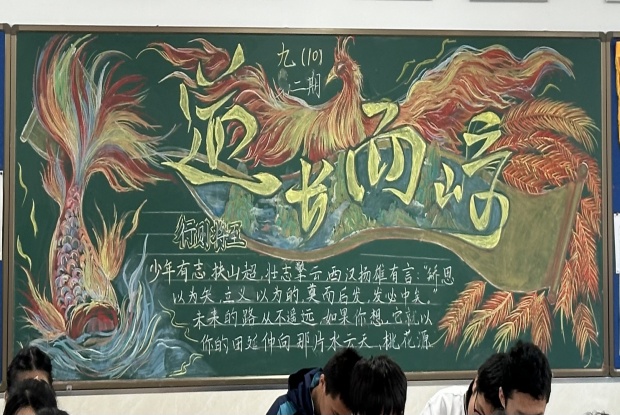 九(10)
二期
道长而崎
行则将至
少年有志,扶山超,壮志擎云.西汉扬雄有言:"思
以为矢,立义以为的,奠而后发,发必中矣."
未来的路从不遥远,如果你想,它就以
你的延伸向那片水云天,桃花源